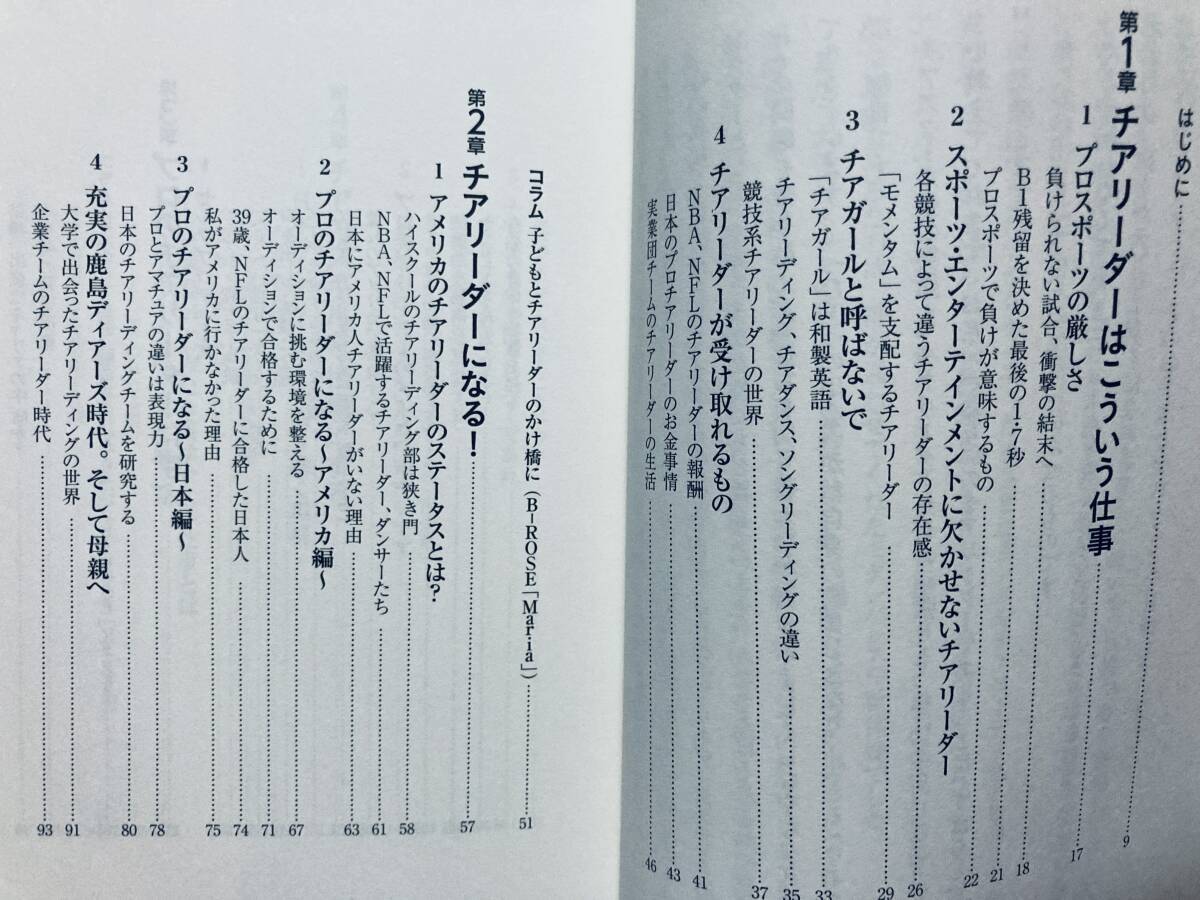 はじめに 9
第1章 チアリーダーはこういう仕事 17
1 プロスポーツの厳しさ
負けられない試合、衝撃の結末へ 18
B1残留を決めた最後の1・7秒 21
プロスポーツで負けが意味するもの 22
2 スポーツ・エンターテインメントに欠かせないチアリーダー
各競技によって違うチアリーダーの存在感 26
「モメンタム」を支配するチアリーダー 29
3 チアガールと呼ばないで
「チアガール」は和製英語 33
チアリーディング、チアダンス、ソングリーディングの違い 35
競技系チアリーダーの世界 37
4 チアリーダーが受け取れるもの
NBA、NFLのチアリーダーの報酬 41
日本のプロチアリーダーのお金事情 43
実業団チームのチアリーダーの生活 46
コラム 子どもとチアリーダーのかけ橋に（B-ROSE「Maria」） 51
第2章 チアリーダーになる！ 57
1 アメリカのチアリーダーのステータスとは？
ハイスクールのチアリーディング部は狭き門 58
NBA、NFLで活躍するチアリーダー、ダンサーたち 61
日本にアメリカ人チアリーダーがいない理由 63
2 プロのチアリーダーになる〜アメリカ編〜
オーディションに挑む環境を整える 67
オーディションで合格するために 71
39歳、NFLのチアリーダーに合格した日本人 74
私がアメリカに行かなかった理由 75
3 プロのチアリーダーになる〜日本編〜
プロとアマチュアの違いは表現力 78
日本のチアリーディングチームを研究する 80
4 充実の鹿島ディアーズ時代。そして母親へ
大学で出会ったチアリーディングの世界 91
企業チームのチアリーダー時代 93